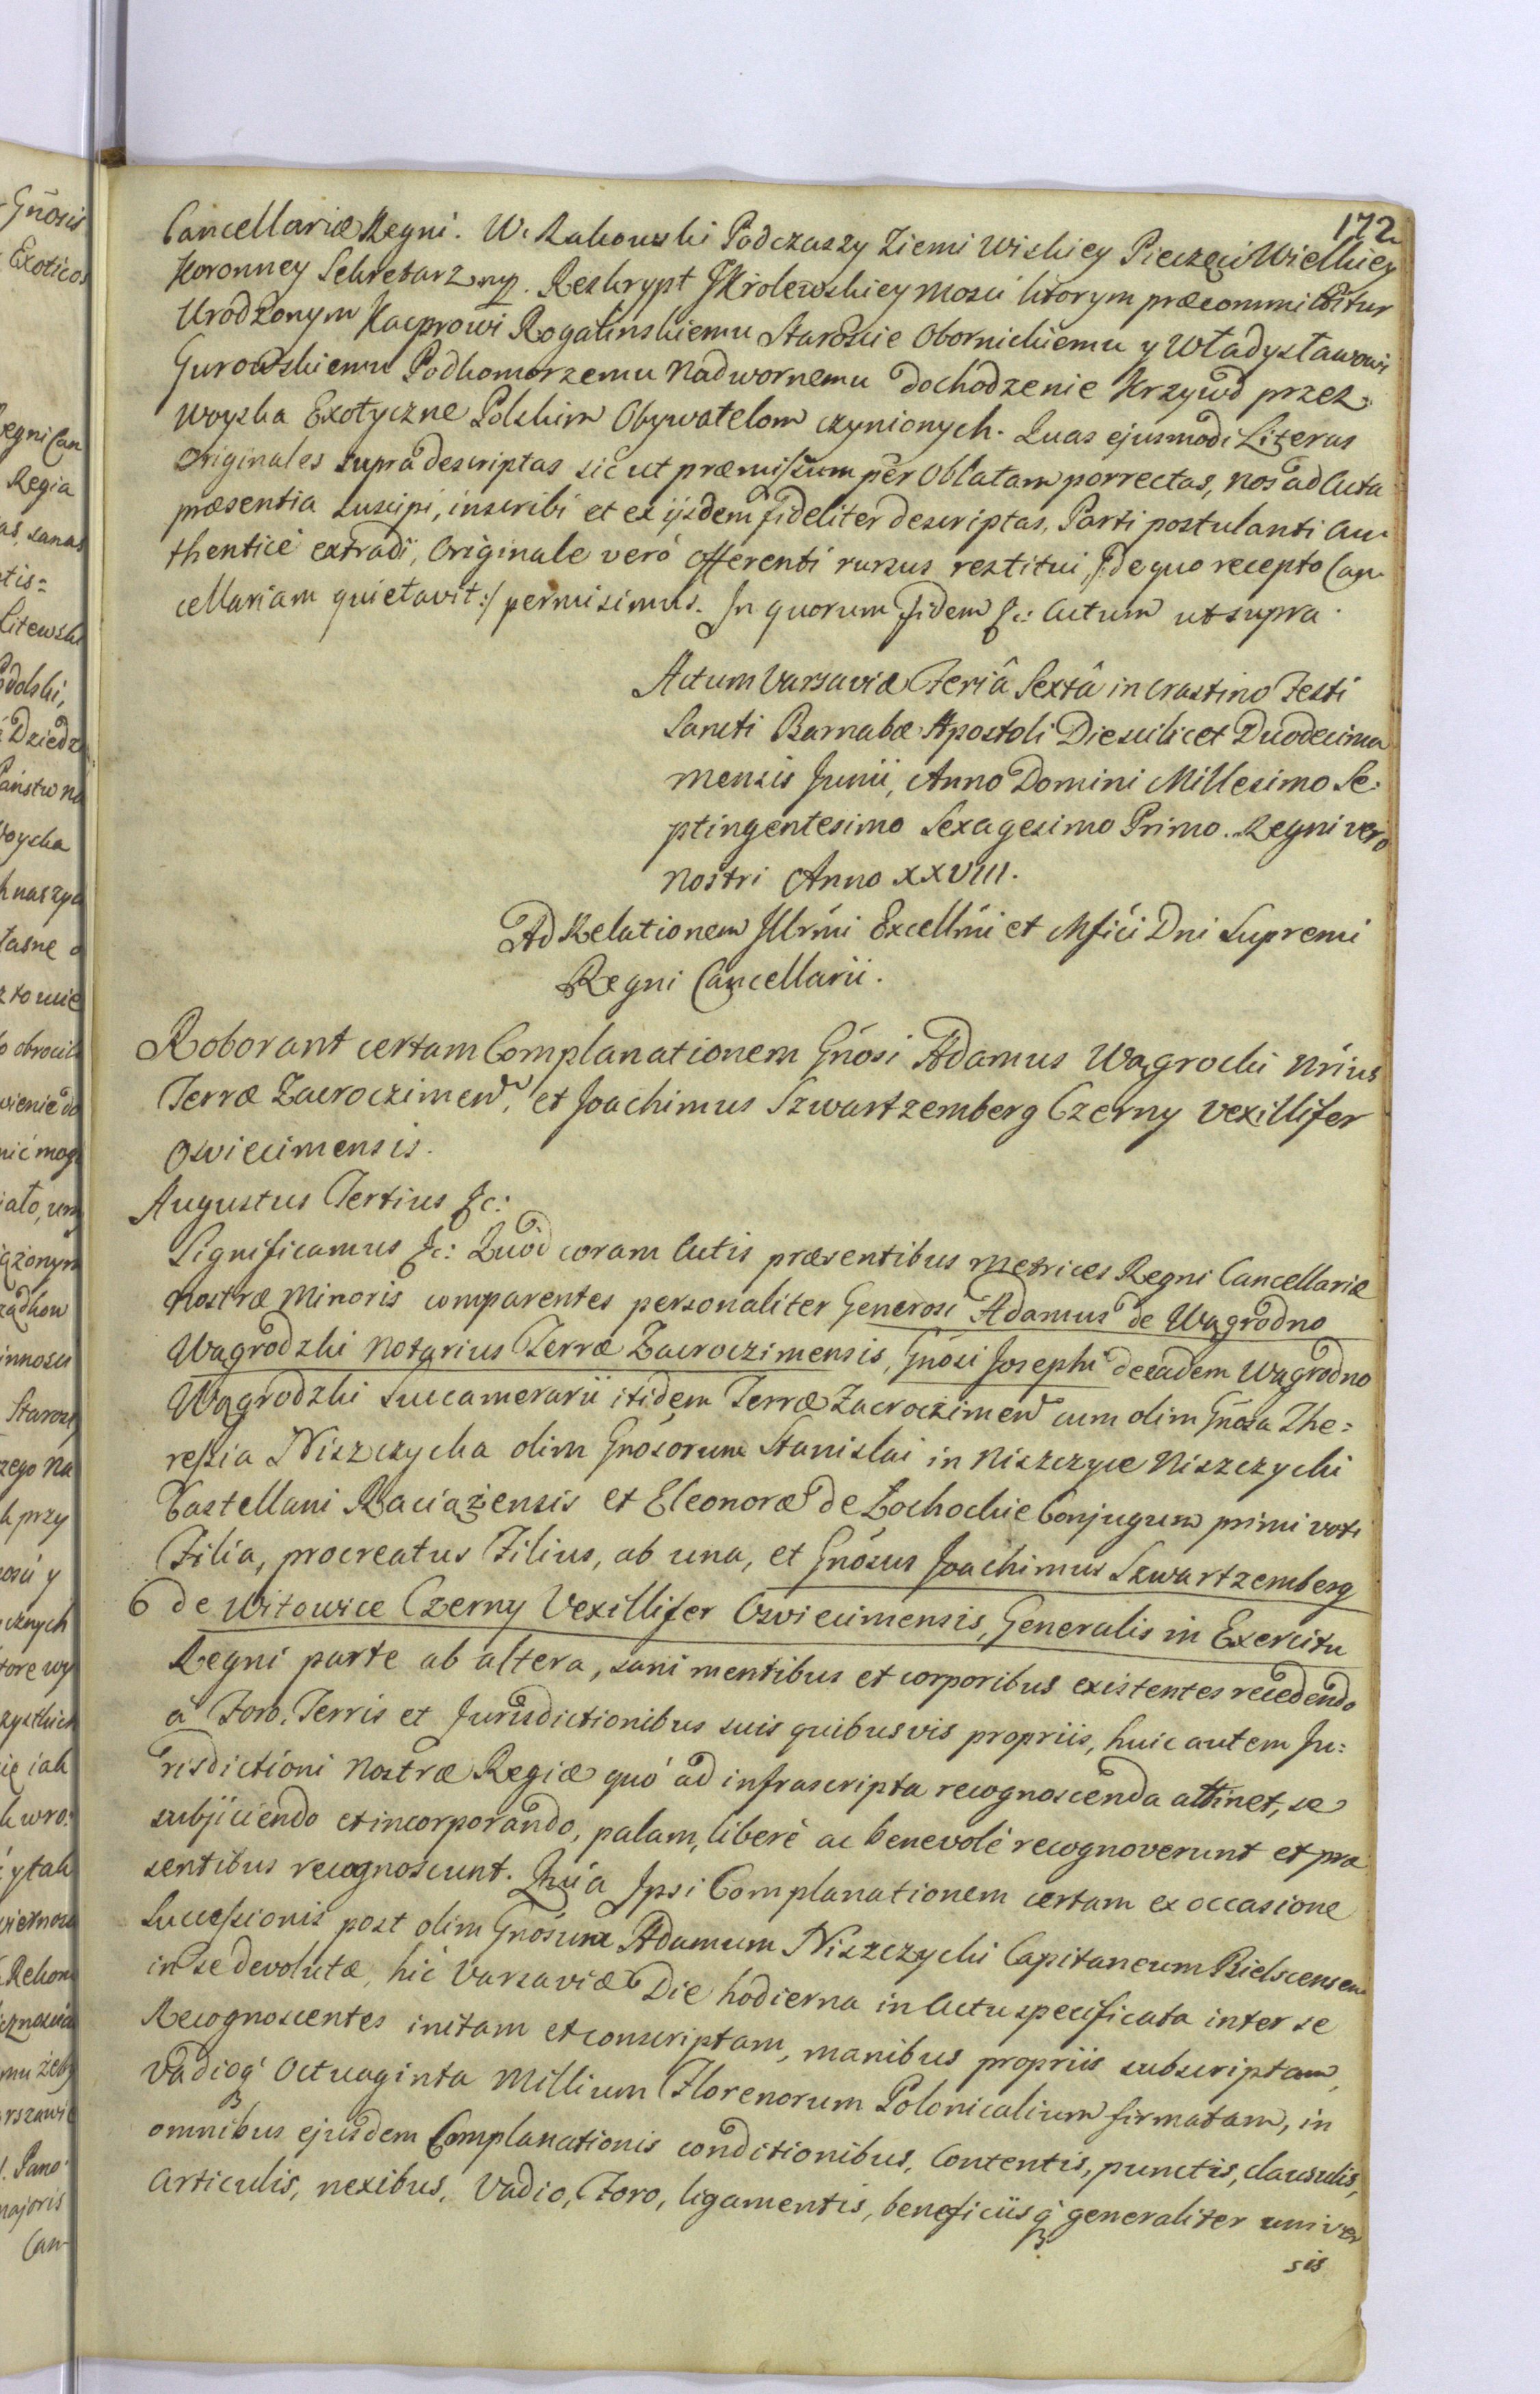 172
Cancellariæ Regni. W. Rakowski Podczaszy Ziemi Wiskiey Pieczęci Wielkiey
Koronney Sekretarz mp. Reskrypt JKrolewskiey Mosci ktorym præcommittitur
Urodzonym Kacprowi Rogalinskiemu Staroscie Obornickiemu y Władysławowi
Gurowskiemu Podkomorzemu Nadwornemu dochodzenie Krzywd przez
Woyska Exotyczne Polskim Obywatelom czynionych. Quas ejusmodi Literas
Originales supra descriptas sic ut præmissum per Oblatam porrectas, nos ad Acta
præsentia suscipi, inscribi et ex ijsdem fideliter descriptas, Parti postulanti Au-
thenticè extradi, Originale verò Offerenti rursus restitui, /: de quo recepto Can-
cellariam quietavit :/ permisimus. In quorum fidem &c: Actum ut supra.
Actum Varsaviæ Feriâ Sextâ in Crastino Festi
Sancti Barnabæ Apostoli Die scilicet Duodecima
mensis Junii, Anno Domini Millesimo Se-
ptingentesimo Sexagesimo Primo. Regni vero
nostri Anno XXVIII.
Ad Relationem Illrmi Excellmi et Mfici Dni Supremi
Regni Cancellarii.
Roborant certam Complanationem Gnosi Adamus Wągrocki Nrius
Terræ Zacroczimen, et Joachimus Szwartzemberg Czerny Vexillifer
Osviecimensis.
Augustus Tertius &c:
Significamus &c: Quod coram Actis præsentibus Metrices Regni Cancellariæ
nostræ Minoris comparentes personaliter Generosi Adamus de Wągrodno
Wągrodzki Notarius Terræ Zacroczimensis, Gnosi Josephi de eadem Wągrodno
Wągrodzki Succamerarii itidem Terræ Zacroczimen cum olim Gnosa The=
ressia Niszczycka olim Gnosorum Stanislai in Niszczyce Niszczycki
Castellani Raciążensis et Eleonoræ de Łochockie Conjugum primi voti
Filia, procreatus Filius, ab una, et Gnosus Joachimus Szwartzemberg
6 de Witowice Czerny Vexillifer Osviecimensis, Generalis in Exercitu
Regni parte ab altera, sani mentibus et corporibus existentes recedendo
à Foro, Terris et Jurisdictionibus suis quibusvis propriis, huic autem Ju=
risdictioni Nostræ Regiæ quò ad infrascripta recognoscenda attinet, se
subjiciendo et incorporando, palam, liberè ac benevolè recognoverunt et præ
sentibus recognoscunt. Quia Ipsi Complanationem certam ex occasione
Successionis post olim Gnosum Adamum Niszczycki Capitaneum Bielscensem
in se devolutæ, hic Varsaviæ Die hodierna in Actu specificata inter se
Recognoscentes initam et conscriptam, manibus propriis subscriptam,
Vadioq́ Octuaginta Millium Florenorum Polonicalium firmatam, in
omnibus ejusdem Complanationis conditionibus, Contentis, punctis, clausulis,
Articulis, nexibus, Vadio, Foro, ligamentis, beneficiisq́ generaliter univer
sis